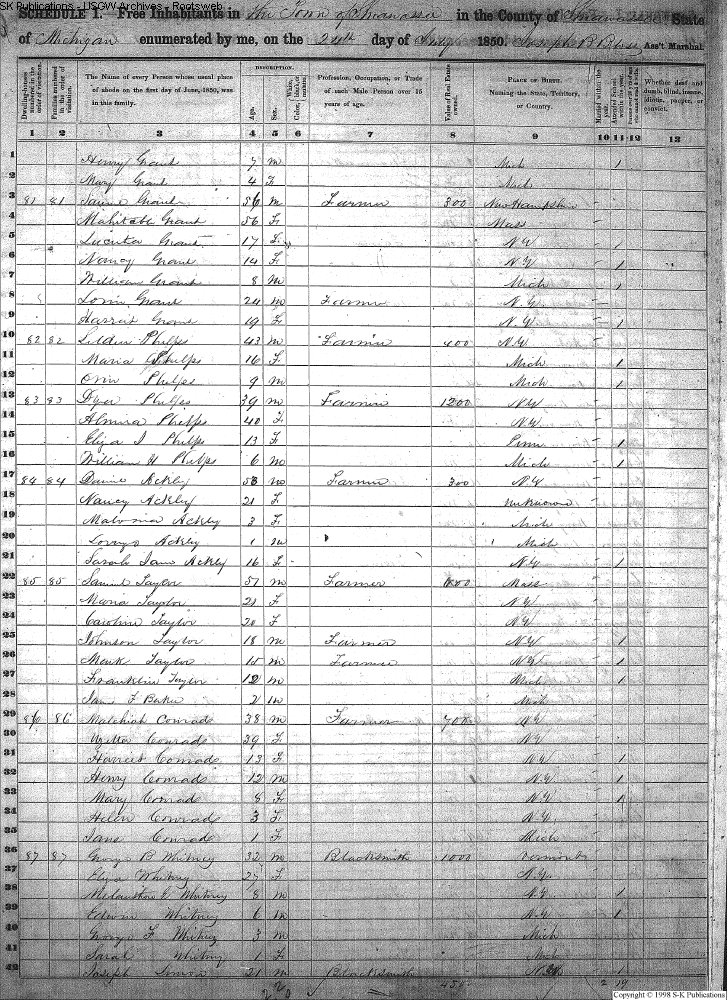 SK Publications - USGW Archives - Rootsweb
SCHEDULE I. Free Inhabitants in the Town of in the County of State
of Michigan enumerated by me, on the 24th day of July 1850. Joseph R Ass't Marshal.
Dwelling-houses numbered in the order of visitation.
Families numbered in the order of visitation.
The Name of every Person whose usual place of abode on the first day of June, 1850, was in this family.
DESCRIPTION.
Age.
Sex.
Color, White, black, or mulatto.
Profession, Occupation, or Trade of each Male Person over 15 years of age.
Value of Real Estate owned.
PLACE OF BIRTH. Naming the State, Territory, or Country.
Married within the year.
Attended School within the year.
Whether deaf and dumb, blind, insane, idiotic, pauper, or convict.
1 2 3 4 5 6 7 8 9 10 11 12 13
1 Henry Grant 7 m Mich 1
2 Mary Grant 4 F Mich
3 81 81 Grant 56 m Farmer 300 New Hampshire
4 Mahitable Grant 56 F Mass
5 Grant 17 F N Y 1
6 Nancy Grant 14 F N Y 1
7 William Grant 8 m Mich 1
8 Grant 24 m Farmer N Y
9 Harriet Grant 19 F N Y 1
10 82 82 Phelps 43 m Farmer 400 N Y
11 Maria Phelps 16 F Mich 1
12 Orin Phelps 9 m Mich 1
13 83 83 Phelps 39 m Farmer 1200 N Y
14 Almira Phelps 40 F N Y
15 Eliza J Phelps 13 F Penn 1
16 William H Phelps 6 m Mich 1
17 84 84 Ackley 53 m Farmer 300 N Y
18 Nancy Ackley 21 F unknown
19 Ackley 3 F Mich
20 Ackley 1 m Mich
21 Sarah Jane Ackley 16 F N Y 1
22 85 85 Samuel Taylor 51 m Farmer Mass
23 Maria Taylor 21 F N Y
24 Caroline Taylor 20 F N Y
25 Johnson Taylor 18 m Farmer N Y 1
26 Mark Taylor 15 m Farmer N Y 1
27 Franklin Taylor 12 m Mich 1
28 F Baker 2 m Mich
29 86 86 Malchiah Conrads 38 m Farmer 700 N Y
30 Conrads 39 F N Y
31 Harriet Conrads 13 F N Y 1
32 Henry Conrads 12 m N Y 1
33 Mary Conrads 8 F N Y 1
34 Helen Conrads 3 F N Y
35 Jane Conrads 1 F Mich
36 87 87 George B Whitney 32 m Blacksmith 1000 Vermont
37 Eliza Whitney 25 F N Y
38 Whitney 8 m N Y 1
39 Edwin Whitney 6 m N Y 1
40 George F Whitney 3 m Mich
41 Sarah Whitney 1 F Mich
42 Joseph 21 m Blacksmith
2 19
Copyright © 1998 S-K Publications